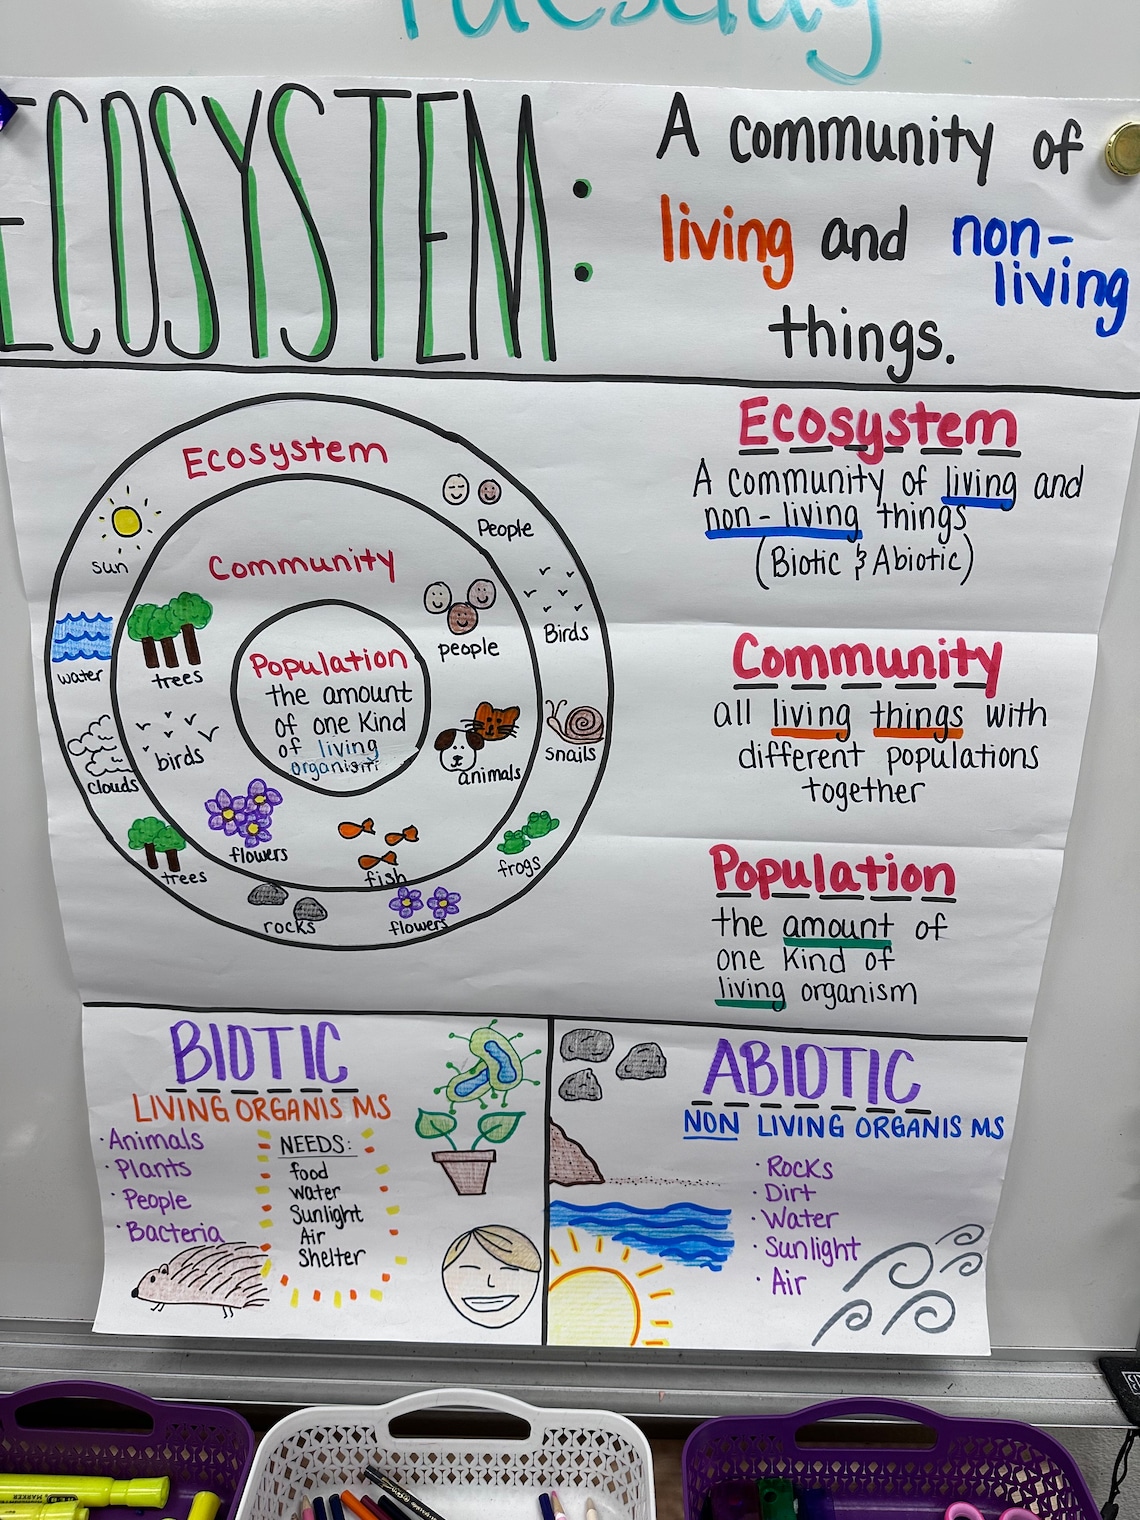 Tuesday
ECOSYSTEM:
A community of
living and non-
living
things.
Ecosystem
sun
water
clouds
trees
rocks
flowers
frogs
snails
Birds
People
Community
trees
birds
flowers
fish
animals
people
Population
the amount
of one Kind
of living
organism
Ecosystem
A community of living and
non-living things
(Biotic & Abiotic)
Community
all living things with
different populations
together
Population
the amount of
one Kind of
living organism
BIOTIC
LIVING ORGANISMS
· Animals
· Plants
· People
· Bacteria
NEEDS:
food
water
Sunlight
Air
Shelter
ABIOTIC
NON LIVING ORGANISMS
· Rocks
· Dirt
· Water
· Sunlight
· Air